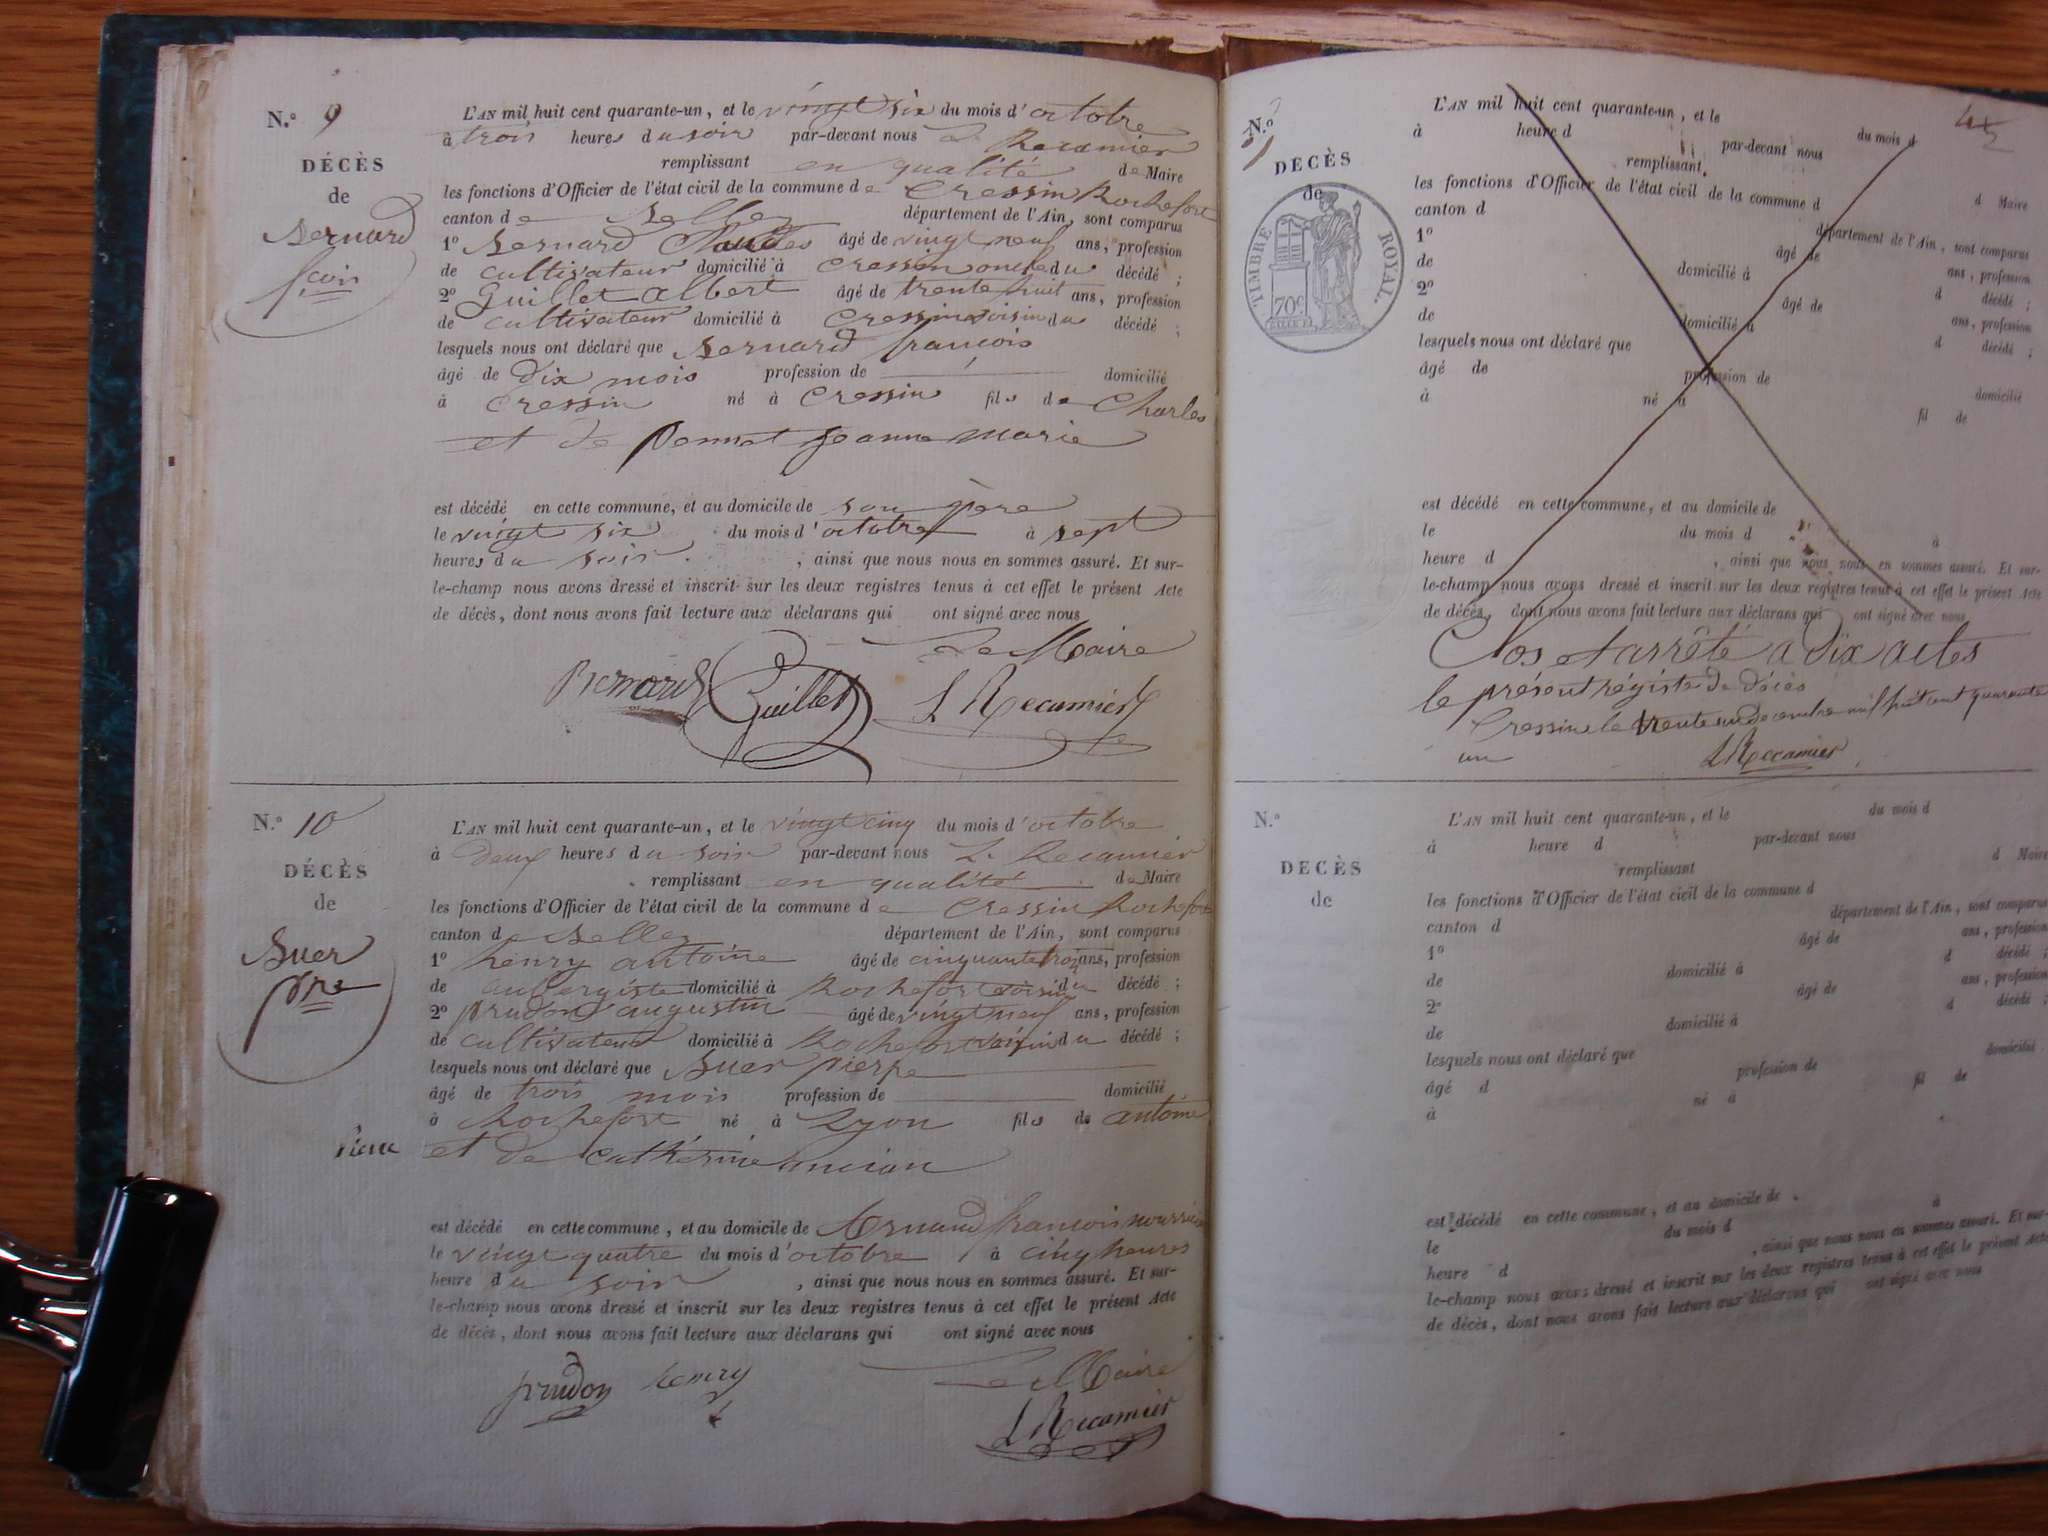 N.° 9
DÉCÈS
de
Bernard
f.cois
L'AN mil huit cent quarante-un, et le vingt six du mois d'octobre
à trois heures du soir par-devant nous L. Recamier
remplissant en qualité de Maire
les fonctions d'Officier de l'état civil de la commune de Cressin Rochefort
canton de Belley département de l'Ain, sont comparus
1° Bernard âgé de vingt neuf ans, profession
de cultivateur domicilié à Cressin oncle du décédé ;
2° Guillet albert âgé de trente huit ans, profession
de cultivateur domicilié à Cressin voisin du décédé ;
lesquels nous ont déclaré que Bernard françois
âgé de dix mois profession de domicilié
à Cressin né à Cressin fils de Charles
et de Jeanne Marie
est décédé en cette commune, et au domicile de son père
le vingt six du mois d'octobre à sept
heures du soir , ainsi que nous nous en sommes assuré. Et sur-
le-champ nous avons dressé et inscrit sur les deux registres tenus à cet effet le présent Acte
de décès, dont nous avons fait lecture aux déclarans qui ont signé avec nous
Le Maire
Bernard Guillet L Recamier
N.° 10
DÉCÈS
de
Buer
pre
L'AN mil huit cent quarante-un, et le vingt cinq du mois d'octobre
à deux heures du soir par-devant nous L. Recamier
remplissant en qualité de Maire
les fonctions d'Officier de l'état civil de la commune de Cressin Rochefort
canton de Belley département de l'Ain, sont comparus
1° henry antoine âgé de cinquante trois ans, profession
de aubergiste domicilié à Rochefort voisin du décédé ;
2° prudon augustin âgé de vingt neuf ans, profession
de cultivateur domicilié à Rochefort voisin du décédé ;
lesquels nous ont déclaré que Buer pierre
âgé de trois mois profession de domicilié
à Rochefort né à Lyon fils de antoine
et de catherine ancian
est décédé en cette commune, et au domicile de françois nourricier
le vingt quatre du mois d'octobre à cinq heures
heure du soir , ainsi que nous nous en sommes assuré. Et sur-
le-champ nous avons dressé et inscrit sur les deux registres tenus à cet effet le présent Acte
de décès, dont nous avons fait lecture aux déclarans qui ont signé avec nous
Le Maire
prudon henry L Recamier
N.°
DÉCÈS
de
TIMBRE ROYAL
70c.
L'AN mil huit cent quarante-un, et le du mois d
à heure d par-devant nous
remplissant d Maire
les fonctions d'Officier de l'état civil de la commune d
canton d département de l'Ain, sont comparus
1° âgé de ans, profession
de domicilié à d décédé ;
2° âgé de ans, profession
de domicilié à d décédé ;
lesquels nous ont déclaré que
âgé de profession de domicilié
à né à fil de
est décédé en cette commune, et au domicile de
le du mois d à
heure d , ainsi que nous nous en sommes assuré. Et sur-
le-champ nous avons dressé et inscrit sur les deux registres tenus à cet effet le présent Acte
de décès, dont nous avons fait lecture aux déclarans qui ont signé avec nous
Clos et arrêté a dix actes
le présent régistre de décès
Cressin le trente un decembre mil huit cent quarante
un
L Recamier
N.°
DÉCÈS
de
L'AN mil huit cent quarante-un, et le du mois d
à heure d par-devant nous
remplissant d Maire
les fonctions d'Officier de l'état civil de la commune d
canton d département de l'Ain, sont comparus
1° âgé de ans, profession
de domicilié à d décédé ;
2° âgé de ans, profession
de domicilié à d décédé ;
lesquels nous ont déclaré que
âgé d profession de domicilié
à né à fil de
est décédé en cette commune, et au domicile de
le du mois d à
heure d , ainsi que nous nous en sommes assuré. Et sur-
le-champ nous avons dressé et inscrit sur les deux registres tenus à cet effet le présent Acte
de décès, dont nous avons fait lecture aux déclarans qui ont signé avec nous